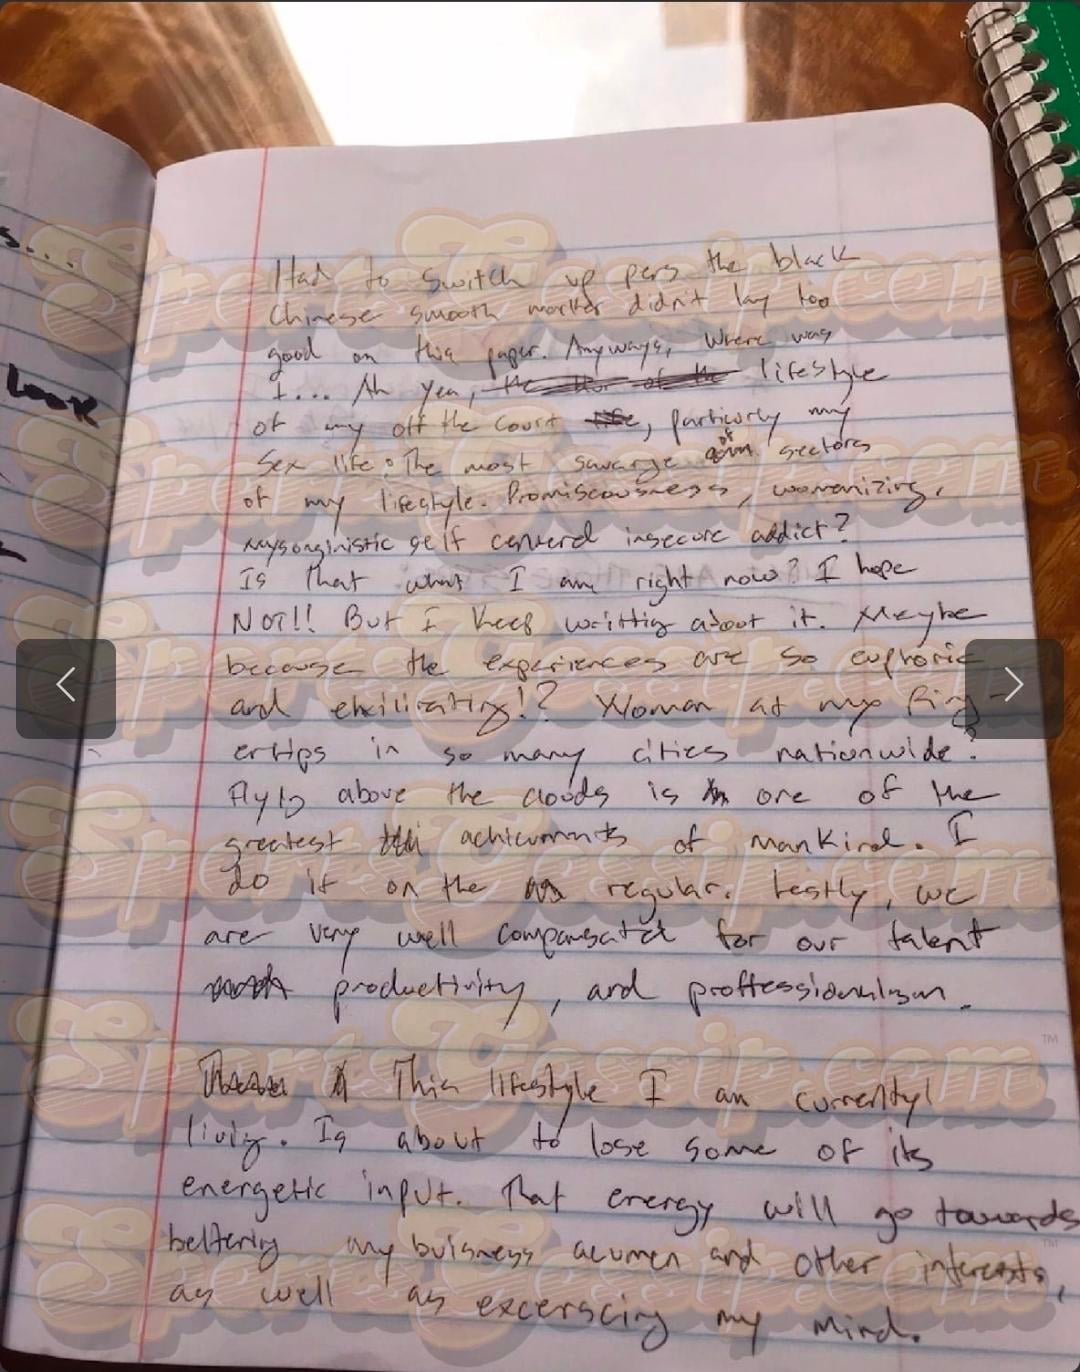 s...
look
Had to switch up pens the black
Chinese smooth marker didn't lay too
good on this paper. Anyways, Where was
I... Ah yea, lifestyle
of my off the court , particurly my
sex life. The most savarge of sectors
of my lifestyle. Promiscousness, womanizing,
mysonginistic self centered insecure addict?
Is that what I am right now? I hope
NOT!! But I keep writting about it. Maybe
because the experiences are so euphoric
and exilirating!? Woman at my fing-
ertips in so many cities nationwide.
Flying above the clouds is one of the
greatest achievments of mankind. I
do it on the regular. Lastly, we
are very well compensated for our talent
productivity, and proffessionalism.
This lifestyle I am currently
living. Is about to lose some of its
energetic input. That energy will go towards
bettering my buisness acumen and other interests,
as well as excerscing my mind.
SportsGossip.com
TM